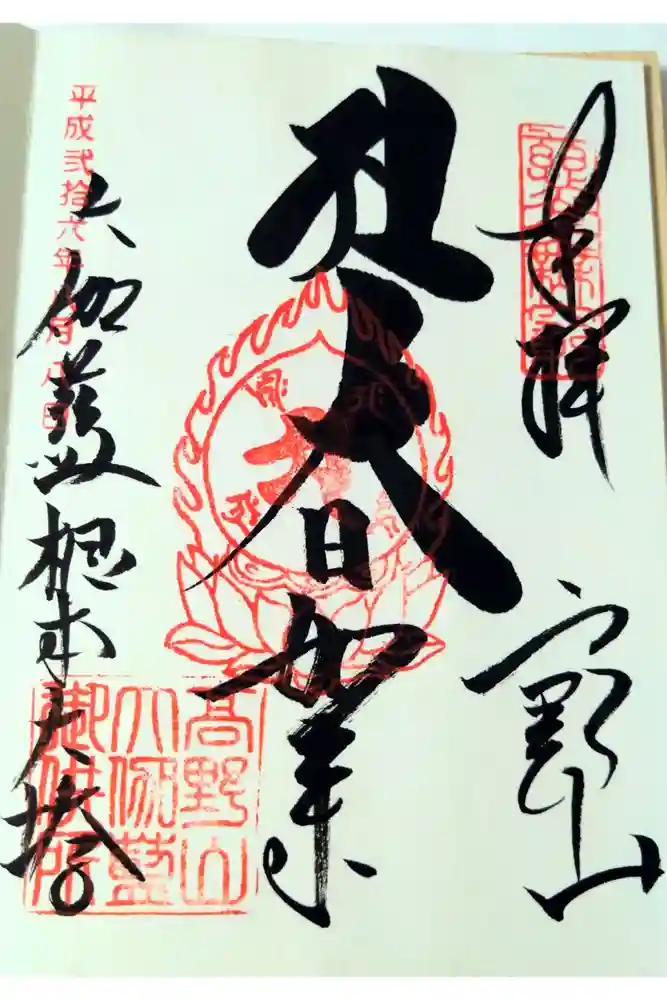 奉拝
高野山
大日如来
大伽藍根本大塔
平成弐拾六年
高野山
大伽藍
御供所